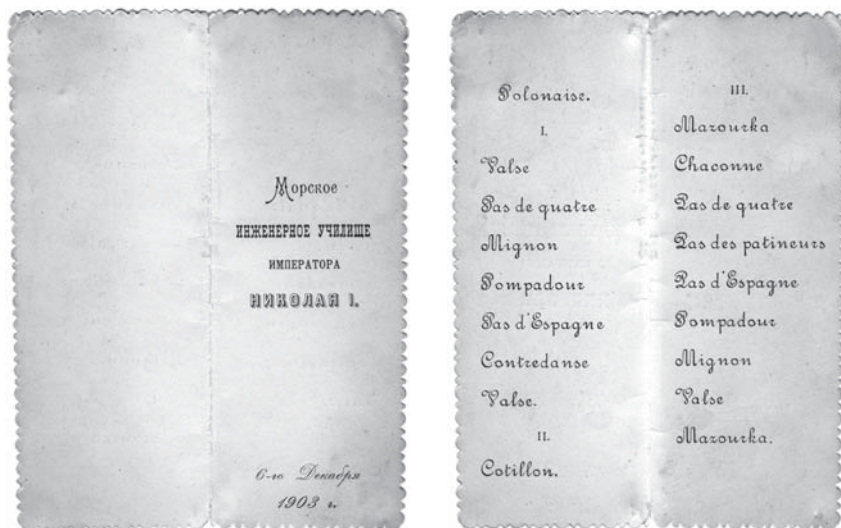 Морское
ИНЖЕНЕРНОЕ УЧИЛИЩЕ
ИМПЕРАТОРА
НИКОЛАЯ I.
6-го Декабря
1903 г.
Polonaise.
I.
Valse
Pas de quatre
Mignon
Pompadour
Pas d'Espagne
Contredanse
Valse.
II.
Cotillon.
III.
Mazourka
Chaconne
Pas de quatre
Pas des patineurs
Pas d'Espagne
Pompadour
Mignon
Valse
Mazourka.